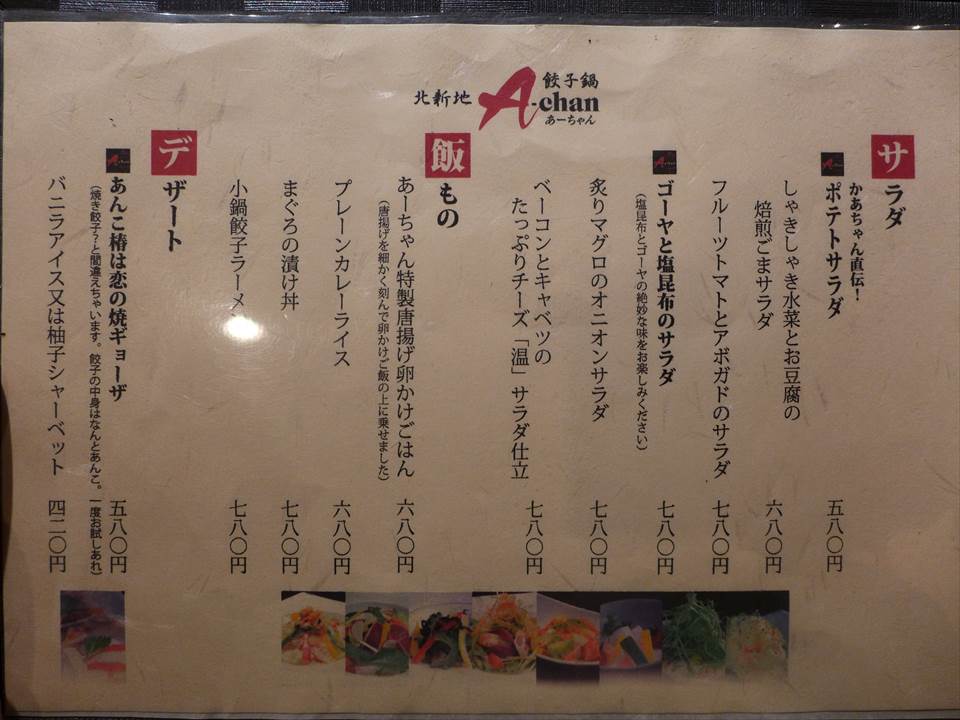 北新地
A-chan
餃子鍋
あーちゃん
サラダ
かあちゃん直伝！
ポテトサラダ 五八〇円
しゃきしゃき水菜とお豆腐の
焙煎ごまサラダ 六八〇円
フルーツトマトとアボガドのサラダ 七八〇円
ゴーヤと塩昆布のサラダ 七八〇円
（塩昆布とゴーヤの絶妙な味をお楽しみください）
炙りマグロのオニオンサラダ 七八〇円
ベーコンとキャベツの
たっぷりチーズ「温」サラダ仕立 七八〇円
飯もの
あーちゃん特製唐揚げ卵かけごはん 六八〇円
（唐揚げを細かく刻んで卵かけご飯の上に乗せました）
プレーンカレーライス 六八〇円
まぐろの漬け丼 七八〇円
小鍋餃子ラーメン 七八〇円
デザート
あんこ椿は恋の焼ギョーザ 五八〇円
（焼き餃子？と間違えちゃいます。餃子の中身はなんとあんこ。一度お試しあれ）
バニラアイス又は柚子シャーベット 四二〇円